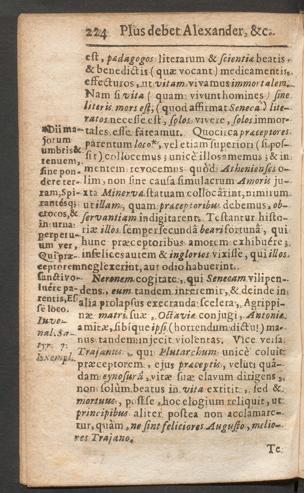 224 Plus debet Alexander, &c.
est, pædagogos literarum & scientiæ beatis,
& benedictis (quæ vocant) medicamentis
effecturos, ut vitam vivamus immortalem.
Nam si vita (quam vivunt homines) sine
literis mors est, (quod affirmat Seneca) lite-
ratos necesse est, solos vivere, solos immor-
tales esse fateamur. Quocirca præceptores
parentum loco*, vel etiam superiori (si pos-
sit) collocemus; unice illos amemus; & in
mentem revocemus quod Athenienses o-
lim, non sine causa simulacrum Amoris ju-
xta Minervæ statuam collocârint, nimirum
ut illam, quam præceptoribus debemus, ob-
servantiam indigitarent. Testantur histo-
riæ illos semper secundâ beari fortunâ, qui
hunc præceptoribus amorem exhibuêre;
infelices autem & inglorios vixisse, qui illos
neglexerint, aut odio habuerint.
Neronem cogitate, qui Senecam vilipen-
dens, eum tandem interemit, & deinde in
alia prolapsus execranda scelera, Agrippi-
næ matri suæ, Octaviæ conjugi, Antoniæ
amitæ, sibique ipsi (horrendum dictu!) ma-
nus tandem injecit violentas. Vice versa
Trajanus, qui Plutarchum unice coluit
præceptorem, ejus præceptis, veluti quâ-
dam cynosurâ, vitæ suæ clavum dirigens,
non solùm beatus in vita extitit, sed &
mortuus, postse hoc elogium reliquit, ut
principibus aliter postea non acclamare-
tur, quàm, ne sint feliciores Augusto, melio-
res Trajano.
Te
*Dii ma-
jorum
umbris &
tenuem,
sine pon-
dere ter-
ram, Spi-
rantésq;
crocos, &
in urna
perpetu-
um ver,
Qui præ-
ceptorem
sancti vo-
luêre pa-
rentis, Es-
se loco.
Juve-
nal. Sa-
tyr. 7.
Exempl.